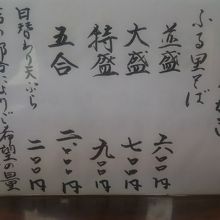 ふる里そば
並盛 六〇〇円
大盛 七〇〇円
特盛 九〇〇円
五合 二、〇〇〇円
日替わり天ぷら 二〇〇円
ご希望の量